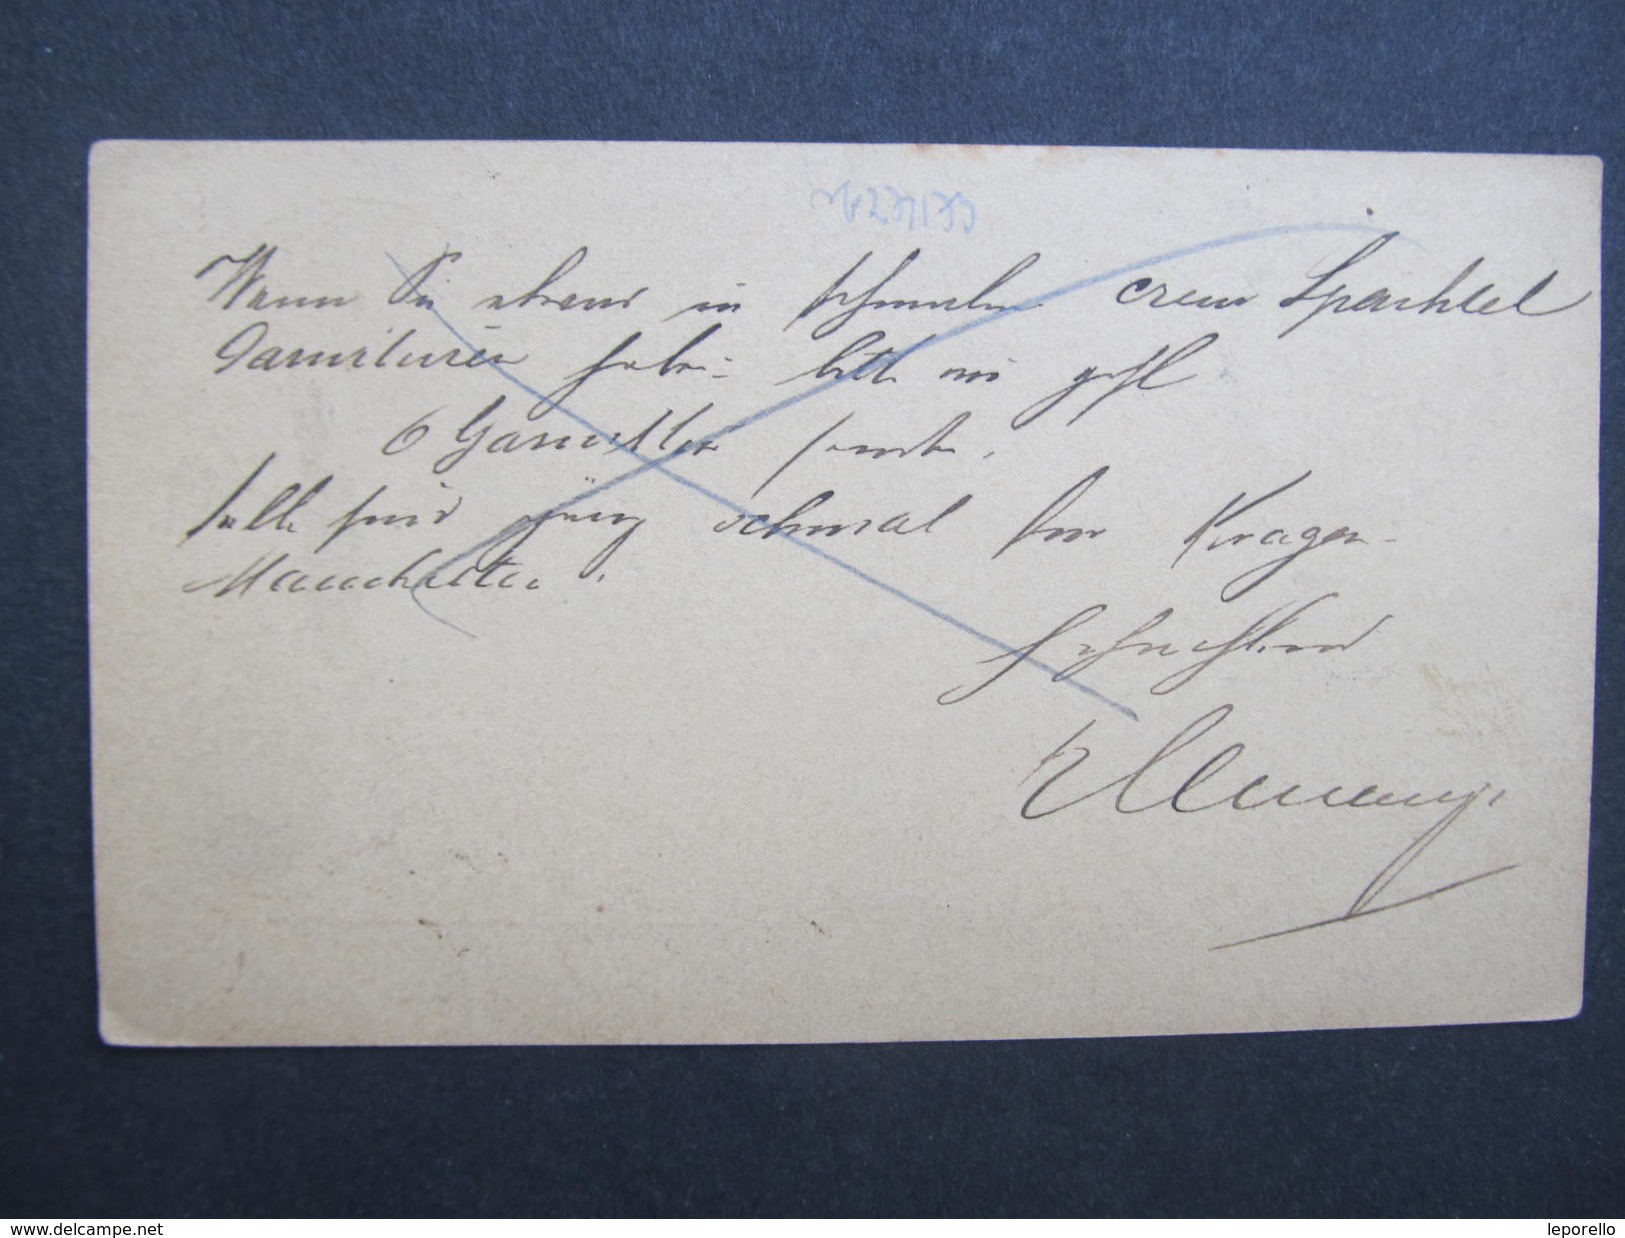 Wenn Sie etwas in schmalen crem Spachtel
Garnituren haben bitte mir gefl
6 Garnitur sende.
solle sein ganz schmal für Kragen
Manchetten.
Hochachtend
delcampe.net
leporello